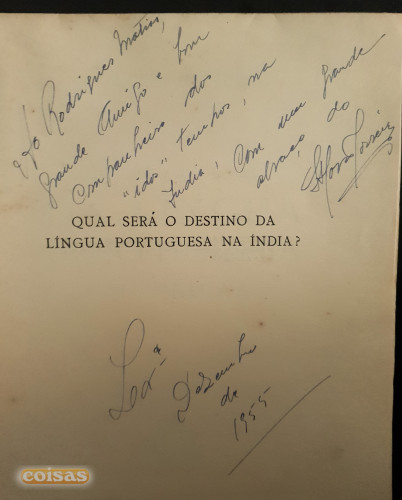 Rodrigues Matias,
grande Amigo e bom
companheiro dos
"idos" tempos, na
India, com um grande
abraço do
QUAL SERÁ O DESTINO DA
LÍNGUA PORTUGUESA NA ÍNDIA?
Lxª
Dezembro
de
1955
coisas